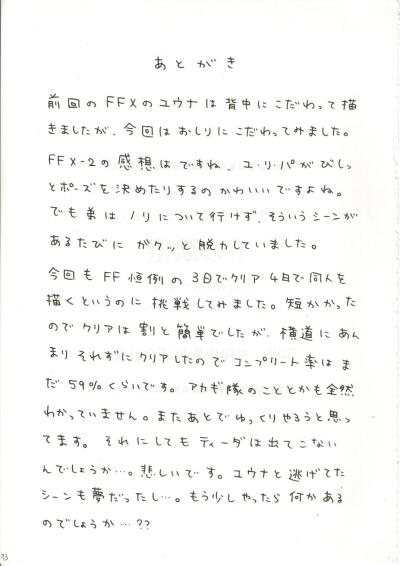 あとがき
前回のFFXのユウナは背中にこだわって描
きましたが、今回はおしりにこだわってみました。
FFX-2の感想はですね、ユ・リ・パがびしっ
とポーズを決めたりするのかわいいですよね。
でも弟はノリについて行けず、そういうシーンが
あるたびにガクッと脱力していました。
今回もFF恒例の3日でクリア4日で同人を
描くというのに挑戦してみました。短かかった
のでクリアは割と簡単でしたが、横道にあん
まりそれずにクリアしたのでコンプリート率はま
だ59%くらいです。アカギ隊のこととかも全然
わかっていません。またあとでゆっくりやろうと思っ
てます。それにしてもティーダは出てこない
んでしょうか…。悲しいです。ユウナと逃げてた
シーンも夢だったし…。もう少しやったら何かある
のでしょうか…??
33